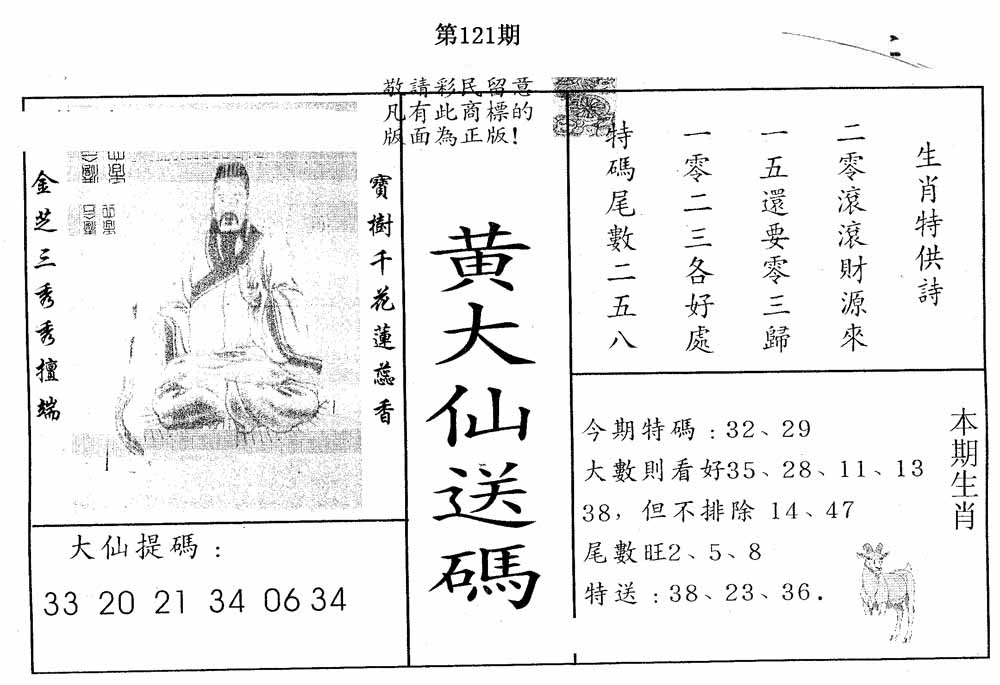 第121期
敬請彩民留意
凡有此商標的
版面為正版!
生肖特供詩
二零滾滾財源來
一五還要零三歸
一零二三各好處
特碼尾數二五八
黃大仙送碼
寶樹千花蓮蕊香
金芝三秀秀擅端
大仙提碼:
33 20 21 34 06 34
本期生肖
今期特碼:32、29
大數則看好35、28、11、13
38,但不排除 14、47
尾數旺2、5、8
特送:38、23、36.